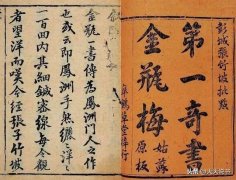 彭城張竹坡批點
第一奇書
金瓶梅
姑蘇原板
皋鶴草堂梓行
金瓶一書傳為鳳洲門人之作
也或云即鳳洲手然
一百回內其細鍼密線每令觀
者望洋而嘆今經張子竹坡